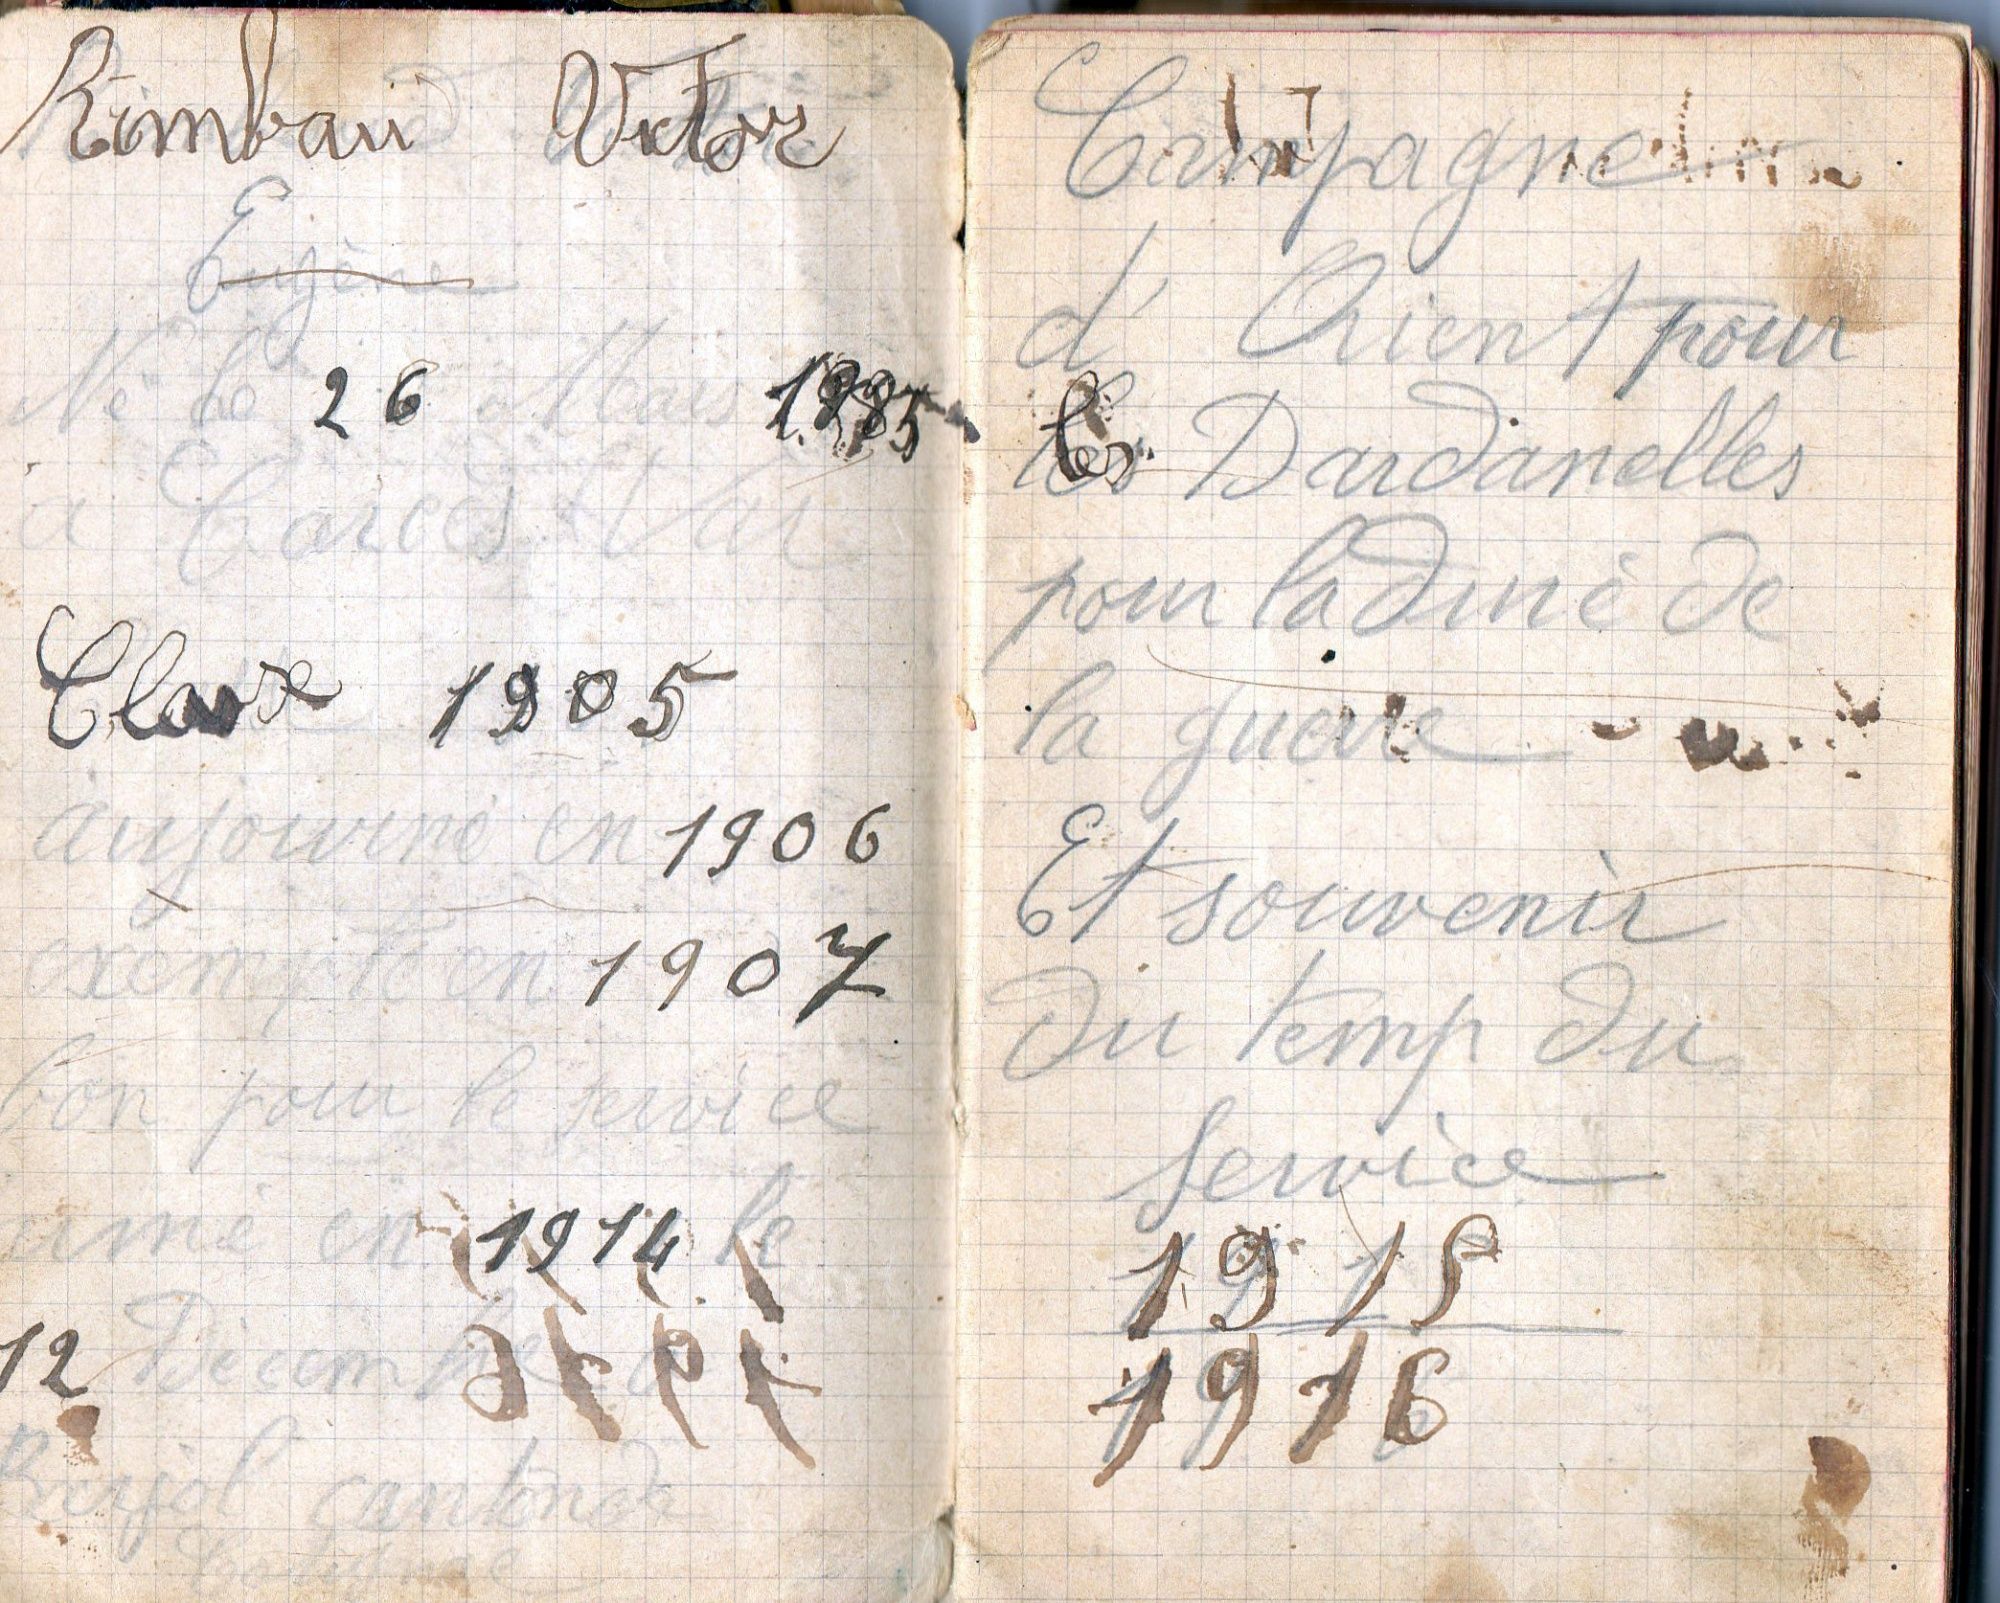 Rimbaud Victor
Eugène
Né le 26 Mars 1885
a Carcès Var
Classe 1905
aujourné en 1906
exempté en 1907
bon pour le service
armé en 1914 le
12 Décembre a
canton de
Cotignac
Campagne
d'Orient pour
les Dardanelles
pour la duré de
la guerre
Et souvenir
du temp du
service
1915
1916